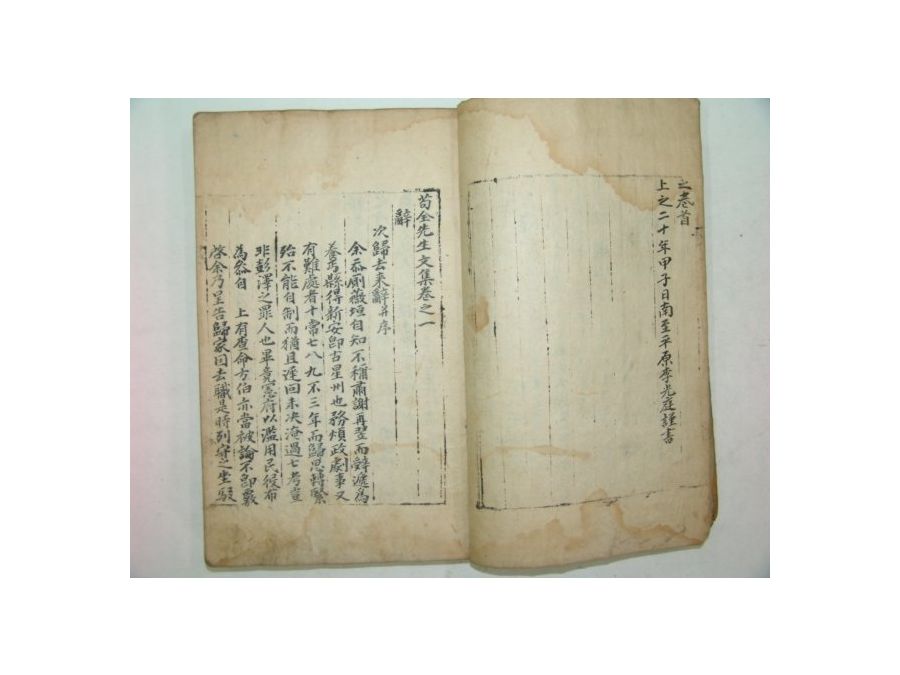 之卷首
上之二十年甲子日南至平原李光庭謹書
苟全先生文集卷之一
辭
次歸去來辭幷序
余忝厠薇垣自知不稱肅謝再翌而辭遞爲
養丐縣得新安卽古星州也務煩政劇事又
有難處者十常七八九不三年而歸思轉緊
殆不能自制而猶且遲回未決淹過七考豈
非彭澤之罪人也畢竟憲府以濫用民役布
爲咎自　上有査命方伯亦當被論不卽覈
啓余乃呈告歸家因去職是時列守之坐駁